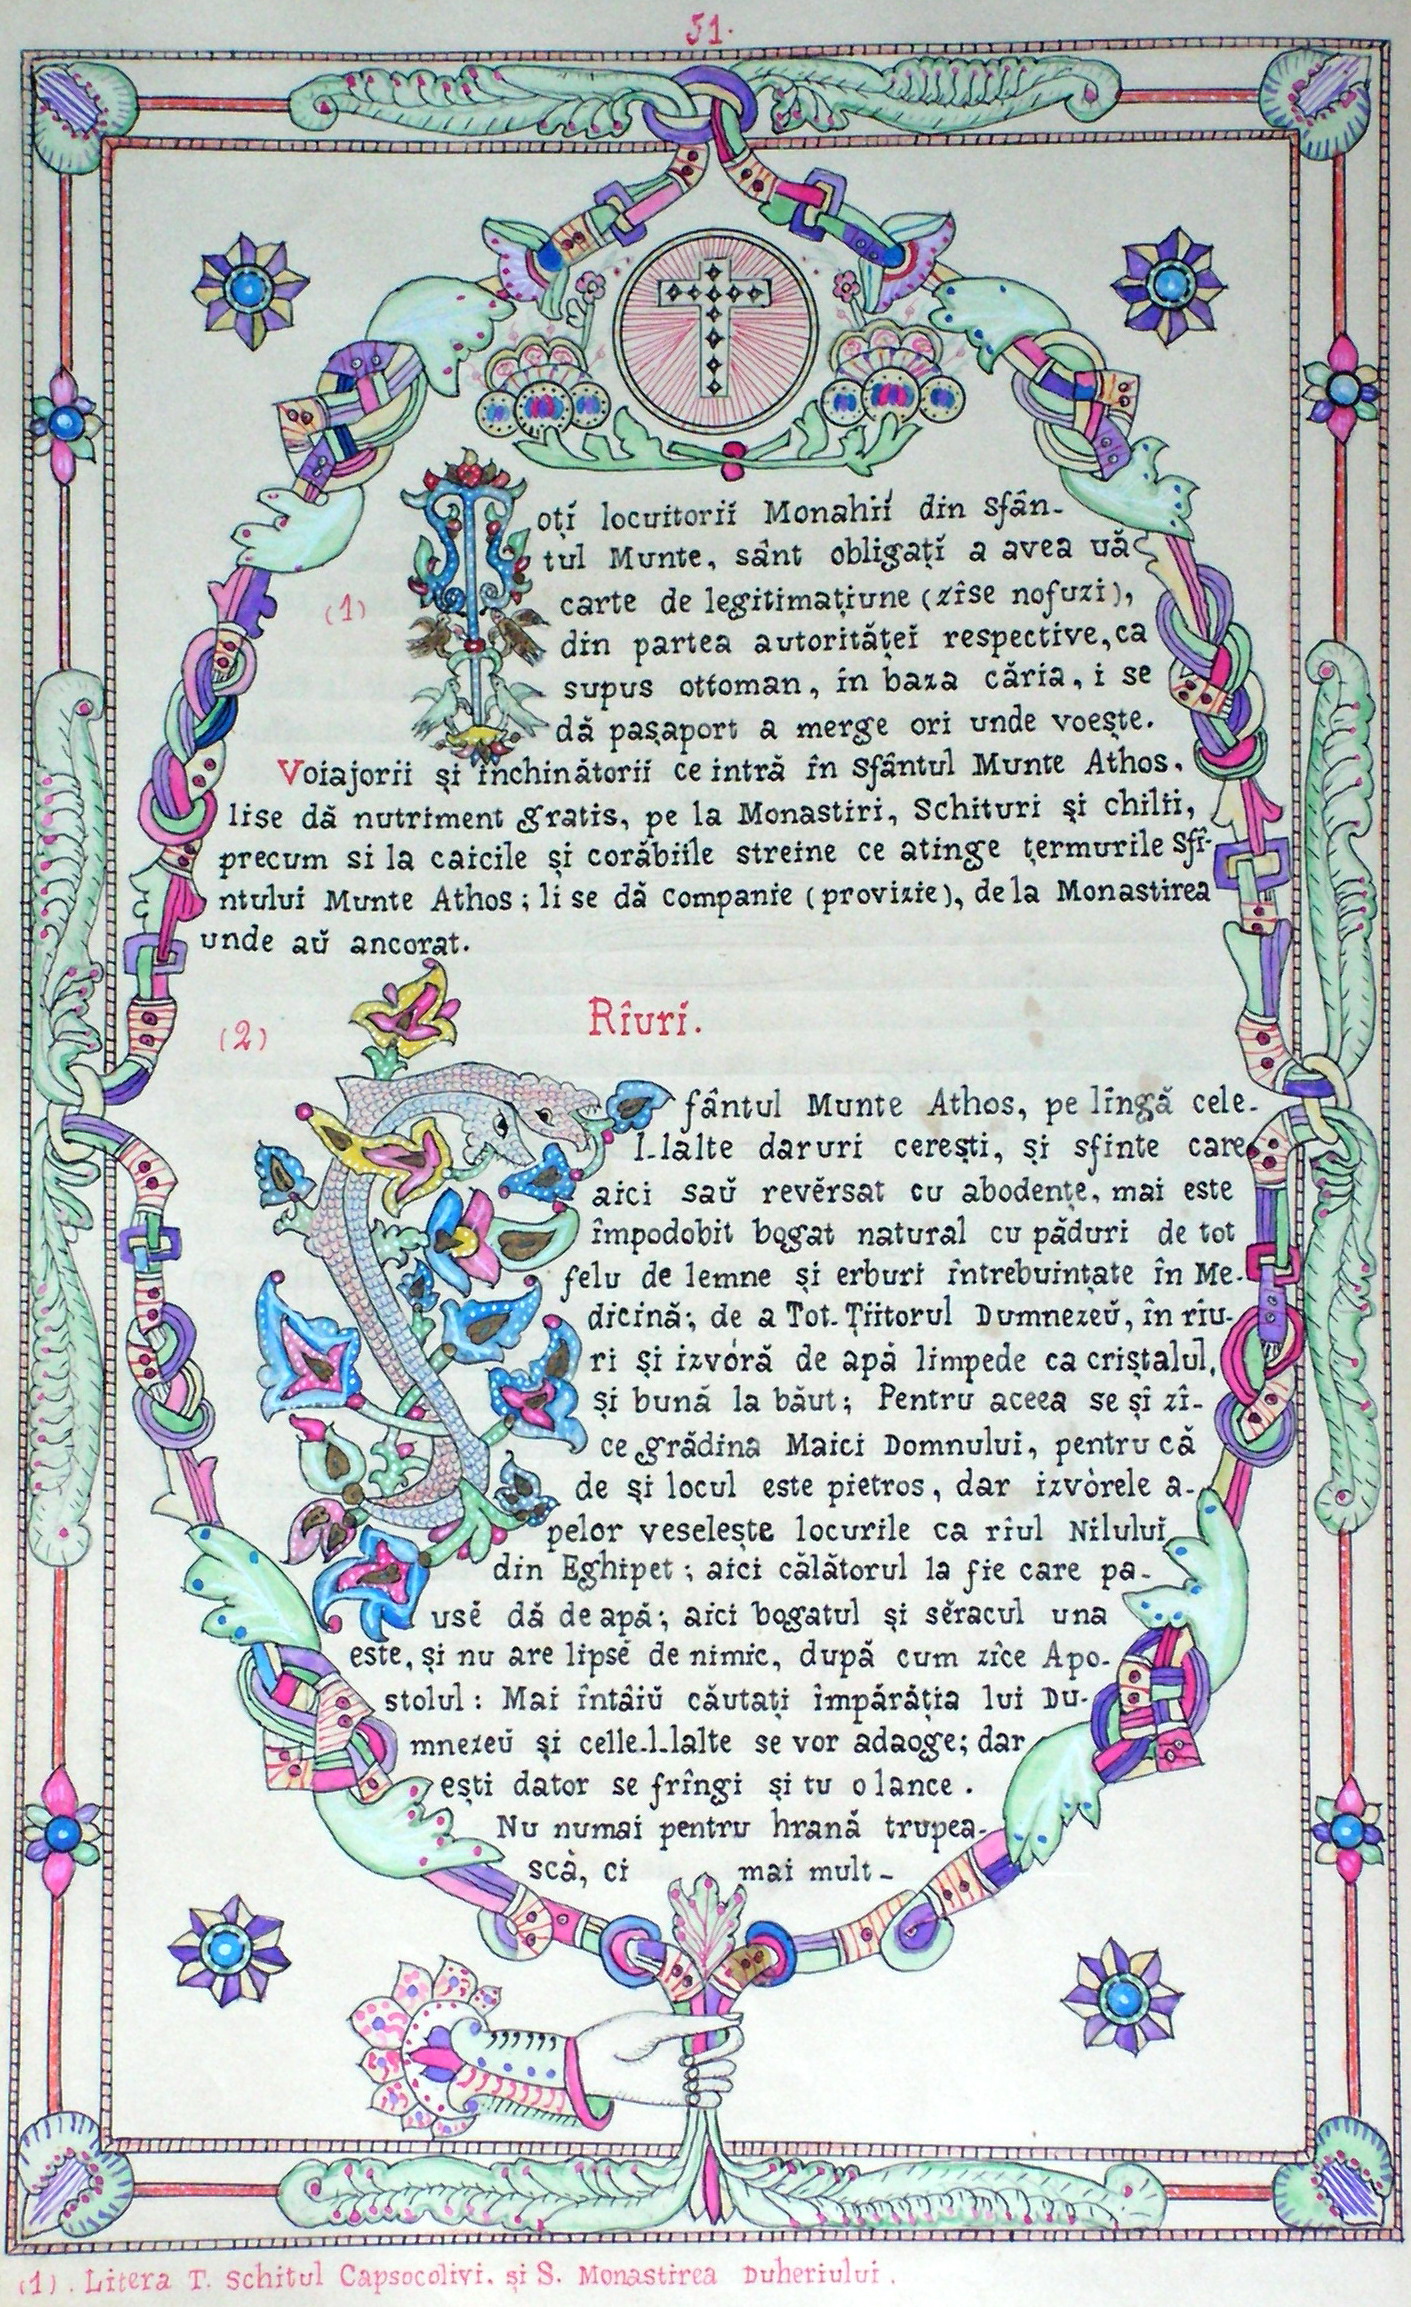 51.
Toți locuitorií Monahií din Sfân-
tul Munte, sânt obligațí a avea uă
(1) carte de legitimațiune (zîse nofuzi),
din partea autoritățeí respective, ca
supus ottoman, în baza căria, i se
dă pașaport a merge ori unde voește.
Voiajorii și închinătorií ce intră în Sfântul Munte Athos,
lise dă nutriment gratis, pe la Monastiri, Schituri și chilii,
precum si la caicile și corăbiile streine ce atinge țermurile Sfî-
ntului Munte Athos; li se dă Companie (provizie), de la Monastirea
unde aŭ ancorat.
(2) Rîurí.
Sfântul Munte Athos, pe lîngă cele-
l-lalte daruri cerești, și sfinte care
aici saŭ revĕrsat cu abodențe, mai este
împodobit bogat natural cu păduri de tot
felu de lemne și erburi întrebuințate în Me-
dicină; de a Tot-Țiitorul Dumnezeŭ, în rîu-
ri și izvóră de apă limpede ca cristalul,
și bună la băut; Pentru aceea se și zî-
ce grădina Maici Domnului, pentru că
de și locul este pietros, dar izvòrele a-
pelor veselește locurile ca rîul Nilului
din Eghipet; aici călătorul la fie care pa-
usĕ dă de apă; aici bogatul și sĕracul una
este, și nu are lipsĕ de nimic, după cum zîce Apo-
stolul: Mai întâiŭ căutați împărăția lui Du-
mnezeŭ și celle-l-lalte se vor adaoge; dar
ești dator se frîngi și tu o lance.
Nu numai pentru hrană trupea-
scă, ci mai mult-
(1). Litera T. Schitul Capsocolivi. și S. Monastirea Duheriului.